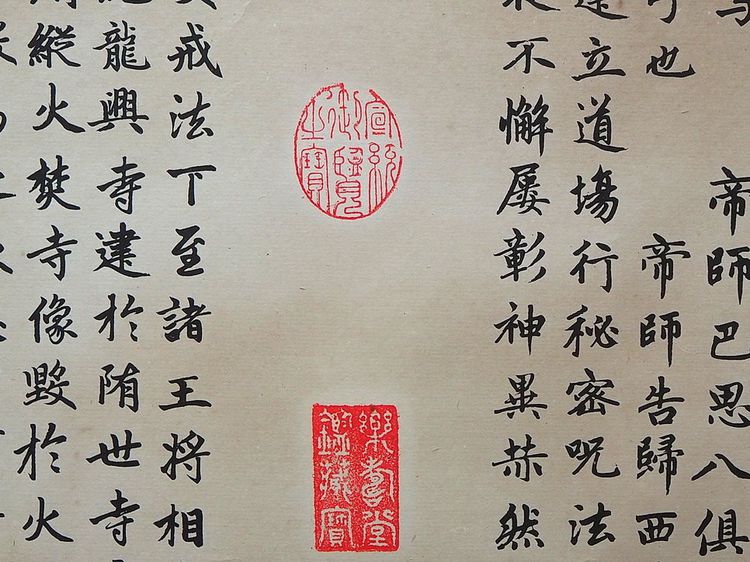 帝師巴思八俱
也　帝師告歸西
立道塲行秘密呪法
不懈屢彰神異赫然
宣統
御覽
之寶
樂壽堂
鑑藏寶
戒法下至諸王將相
龍興寺建於隋世寺
縱火焚寺像毀於火